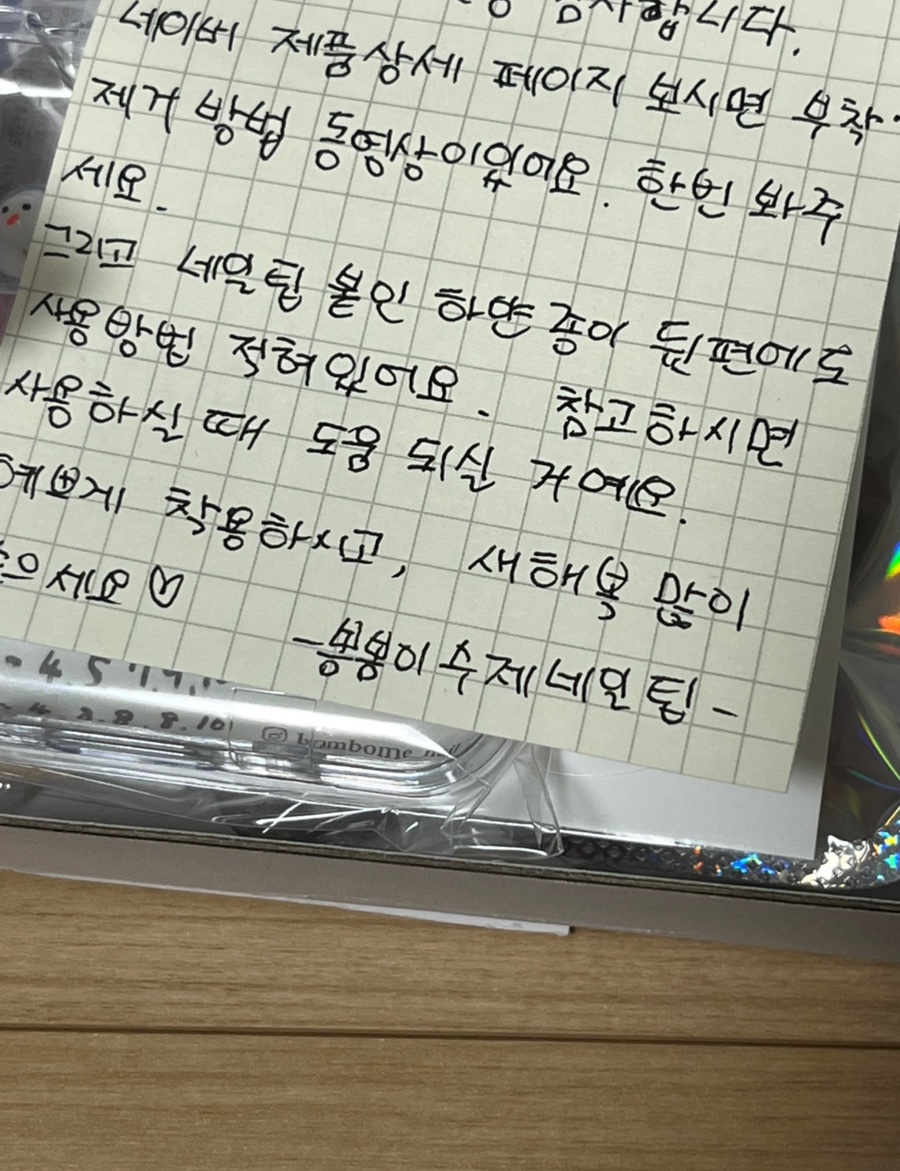 감사합니다.
네이버 제품상세 페이지 보시면 부착·
제거 방법 동영상이있어요. 한번 봐주
세요.
그리고 네일팁 붙인 하얀종이 뒤편에도
사용방법 적혀있어요. 참고하시면
사용하실 때 도움 되실 거예요.
예쁘게 착용하시고, 새해복 많이
세요♡
-봉봉이수제네일팁-
8.8.10